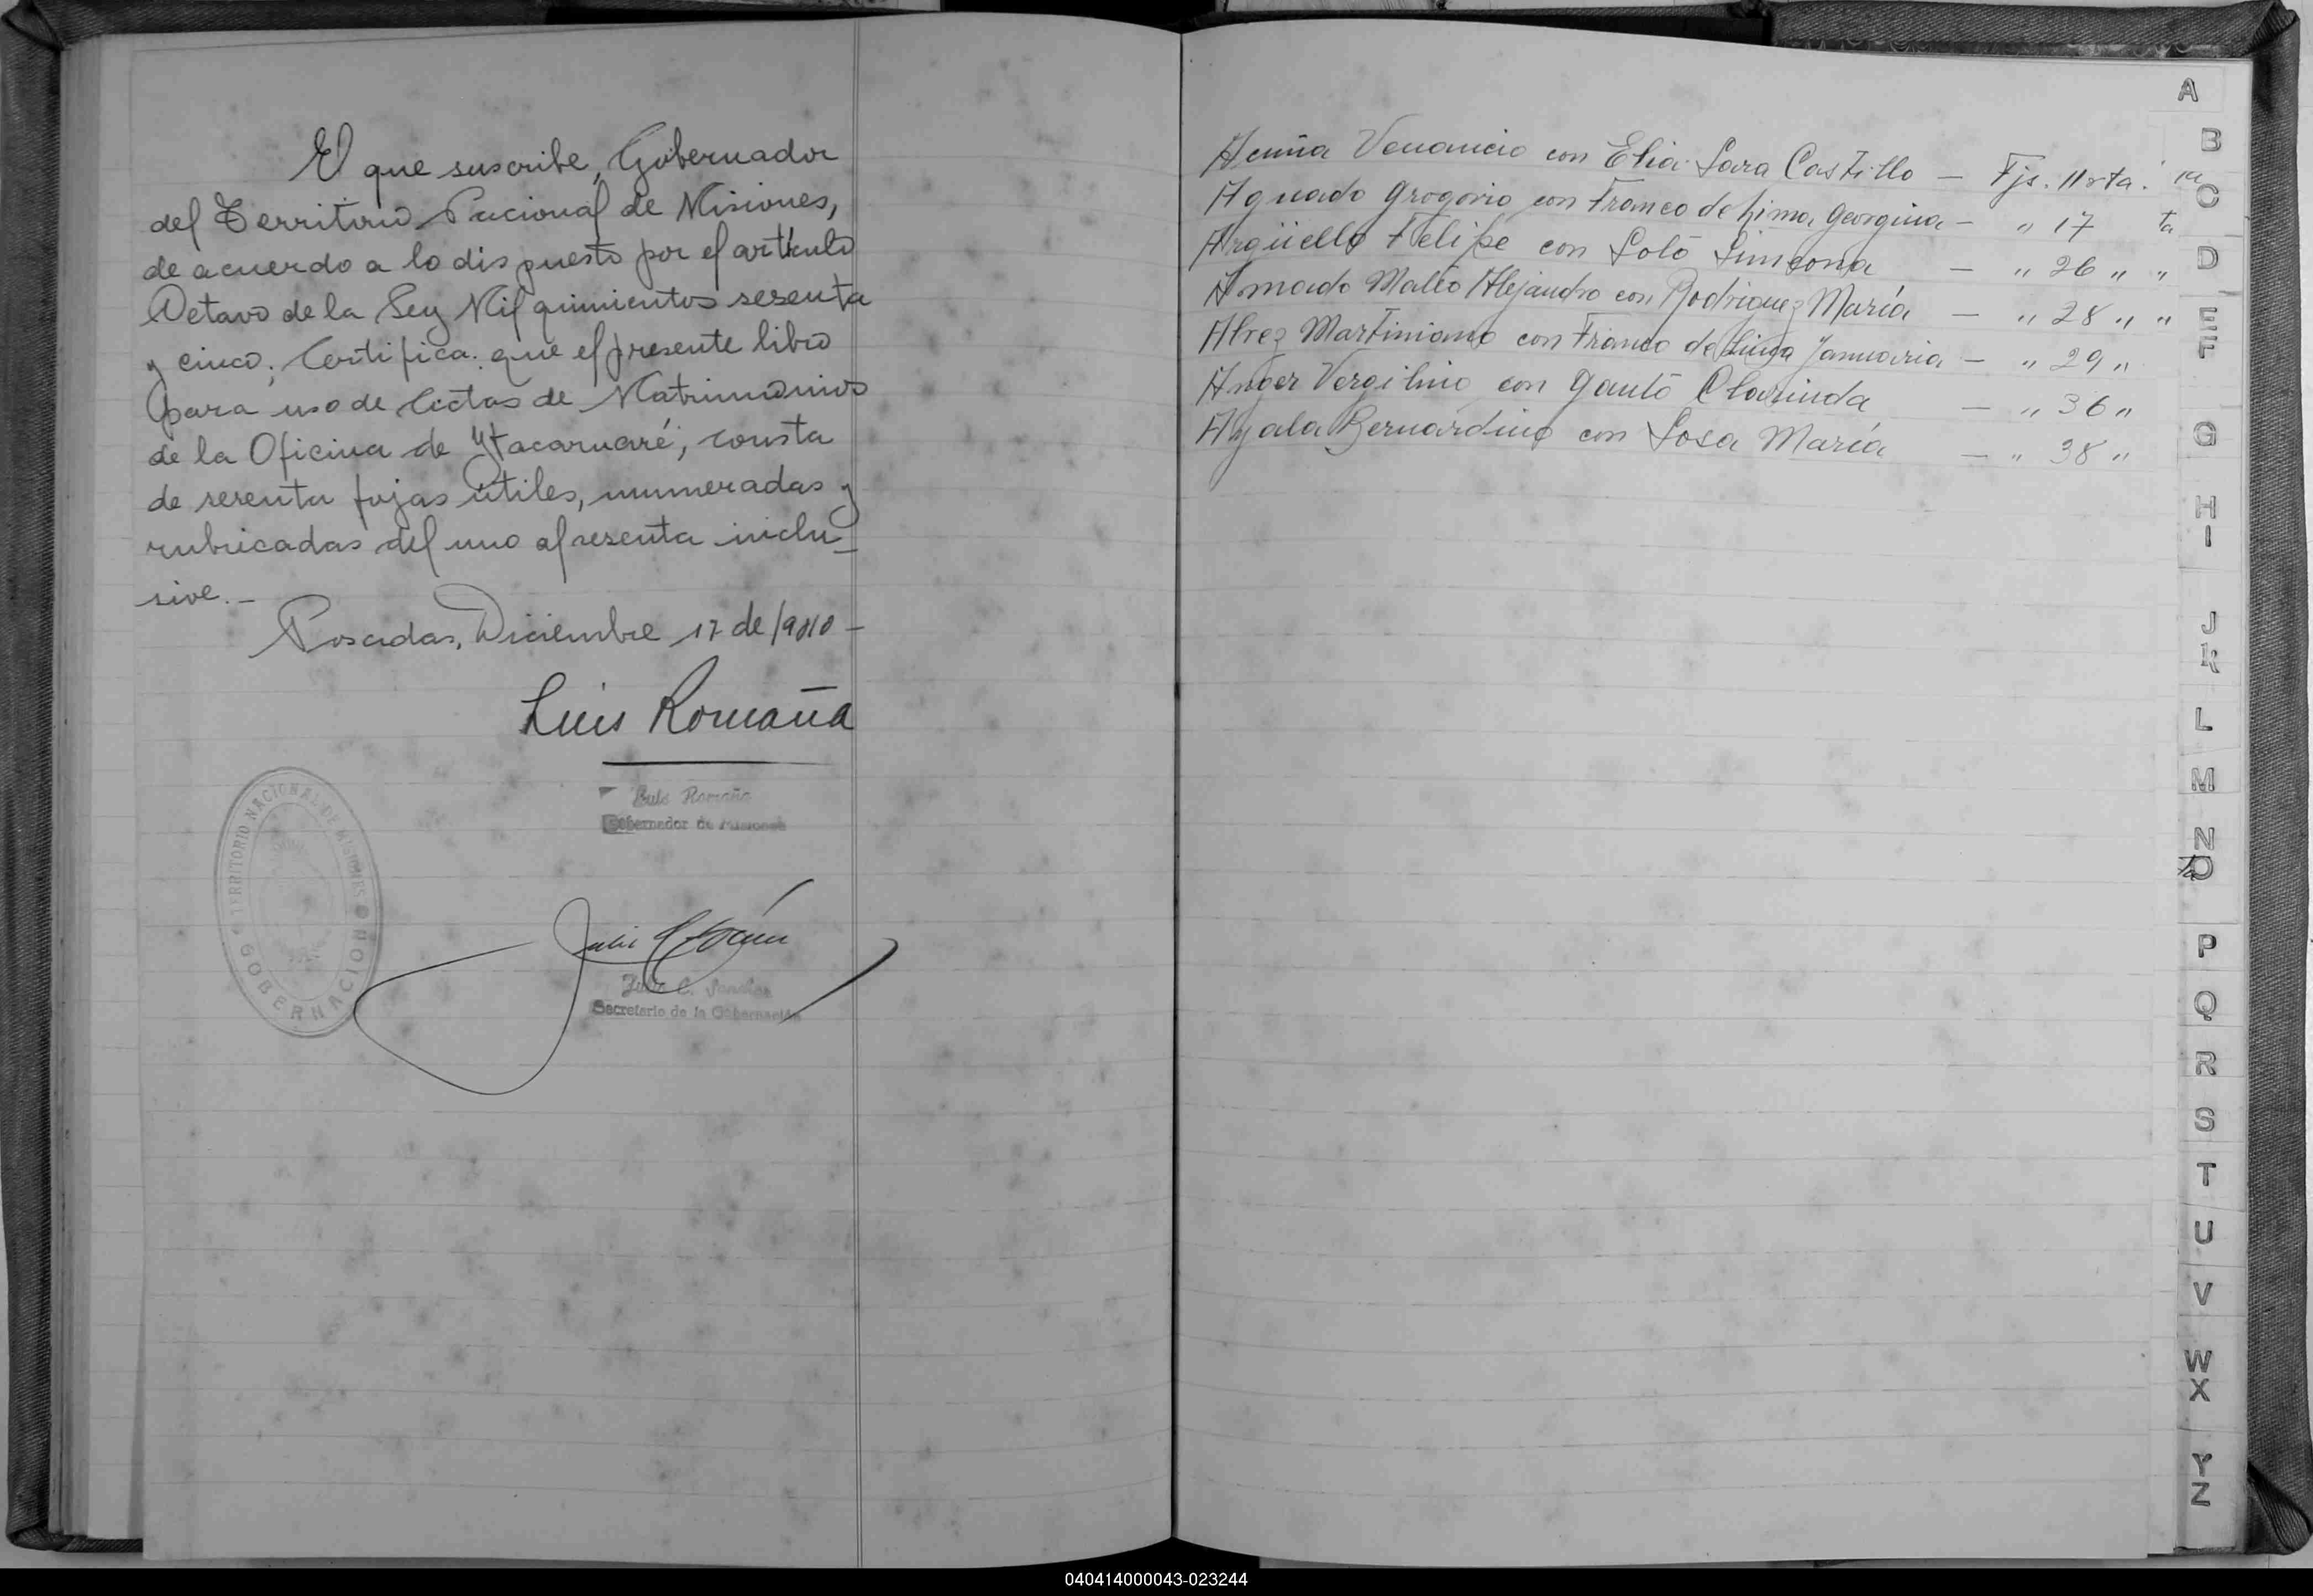 El que suscribe, Gobernador
del Territorio Nacional de Misiones,
de acuerdo a lo dispuesto por el artículo
Octavo de la Ley Mil quinientos sesenta
y cinco; Certifica: que el presente libro
para uso de Actas de Matrimonios
de la Oficina de Ytacaruaré, consta
de sesenta fojas útiles, numeradas y
rubricadas del uno al sesenta inclu-
sive.-
Posadas, Diciembre 17 de
Luis Romaña
Luis Romaña
Gobernador de Misiones
TERRITORIO NACIONAL DE MISIONES
GOBERNACION
Julio C. Sanchez
Secretario de la Gobernación
Acuña Venancio con Elia Sara Castillo — Fjs. 11 vta.
Aguado Grogorio con Franco de Lima Georgina — " 17 ta
Argüello Felipe con Soto Simeona — " 26 " "
Amado Mateo Alejandro con Rodriguez María — " 28 " "
Alvez Martiniano con Franco de Lima Januaria — " 29 "
Anger Vergilino con Gauto Clarinda — " 36 "
Ayala Bernardino con Sosa María — " 38 "
A
B
C
D
E
F
G
H
I
J
K
L
M
N
O
P
Q
R
S
T
U
V
W
X
Y
Z
040414000043-023244